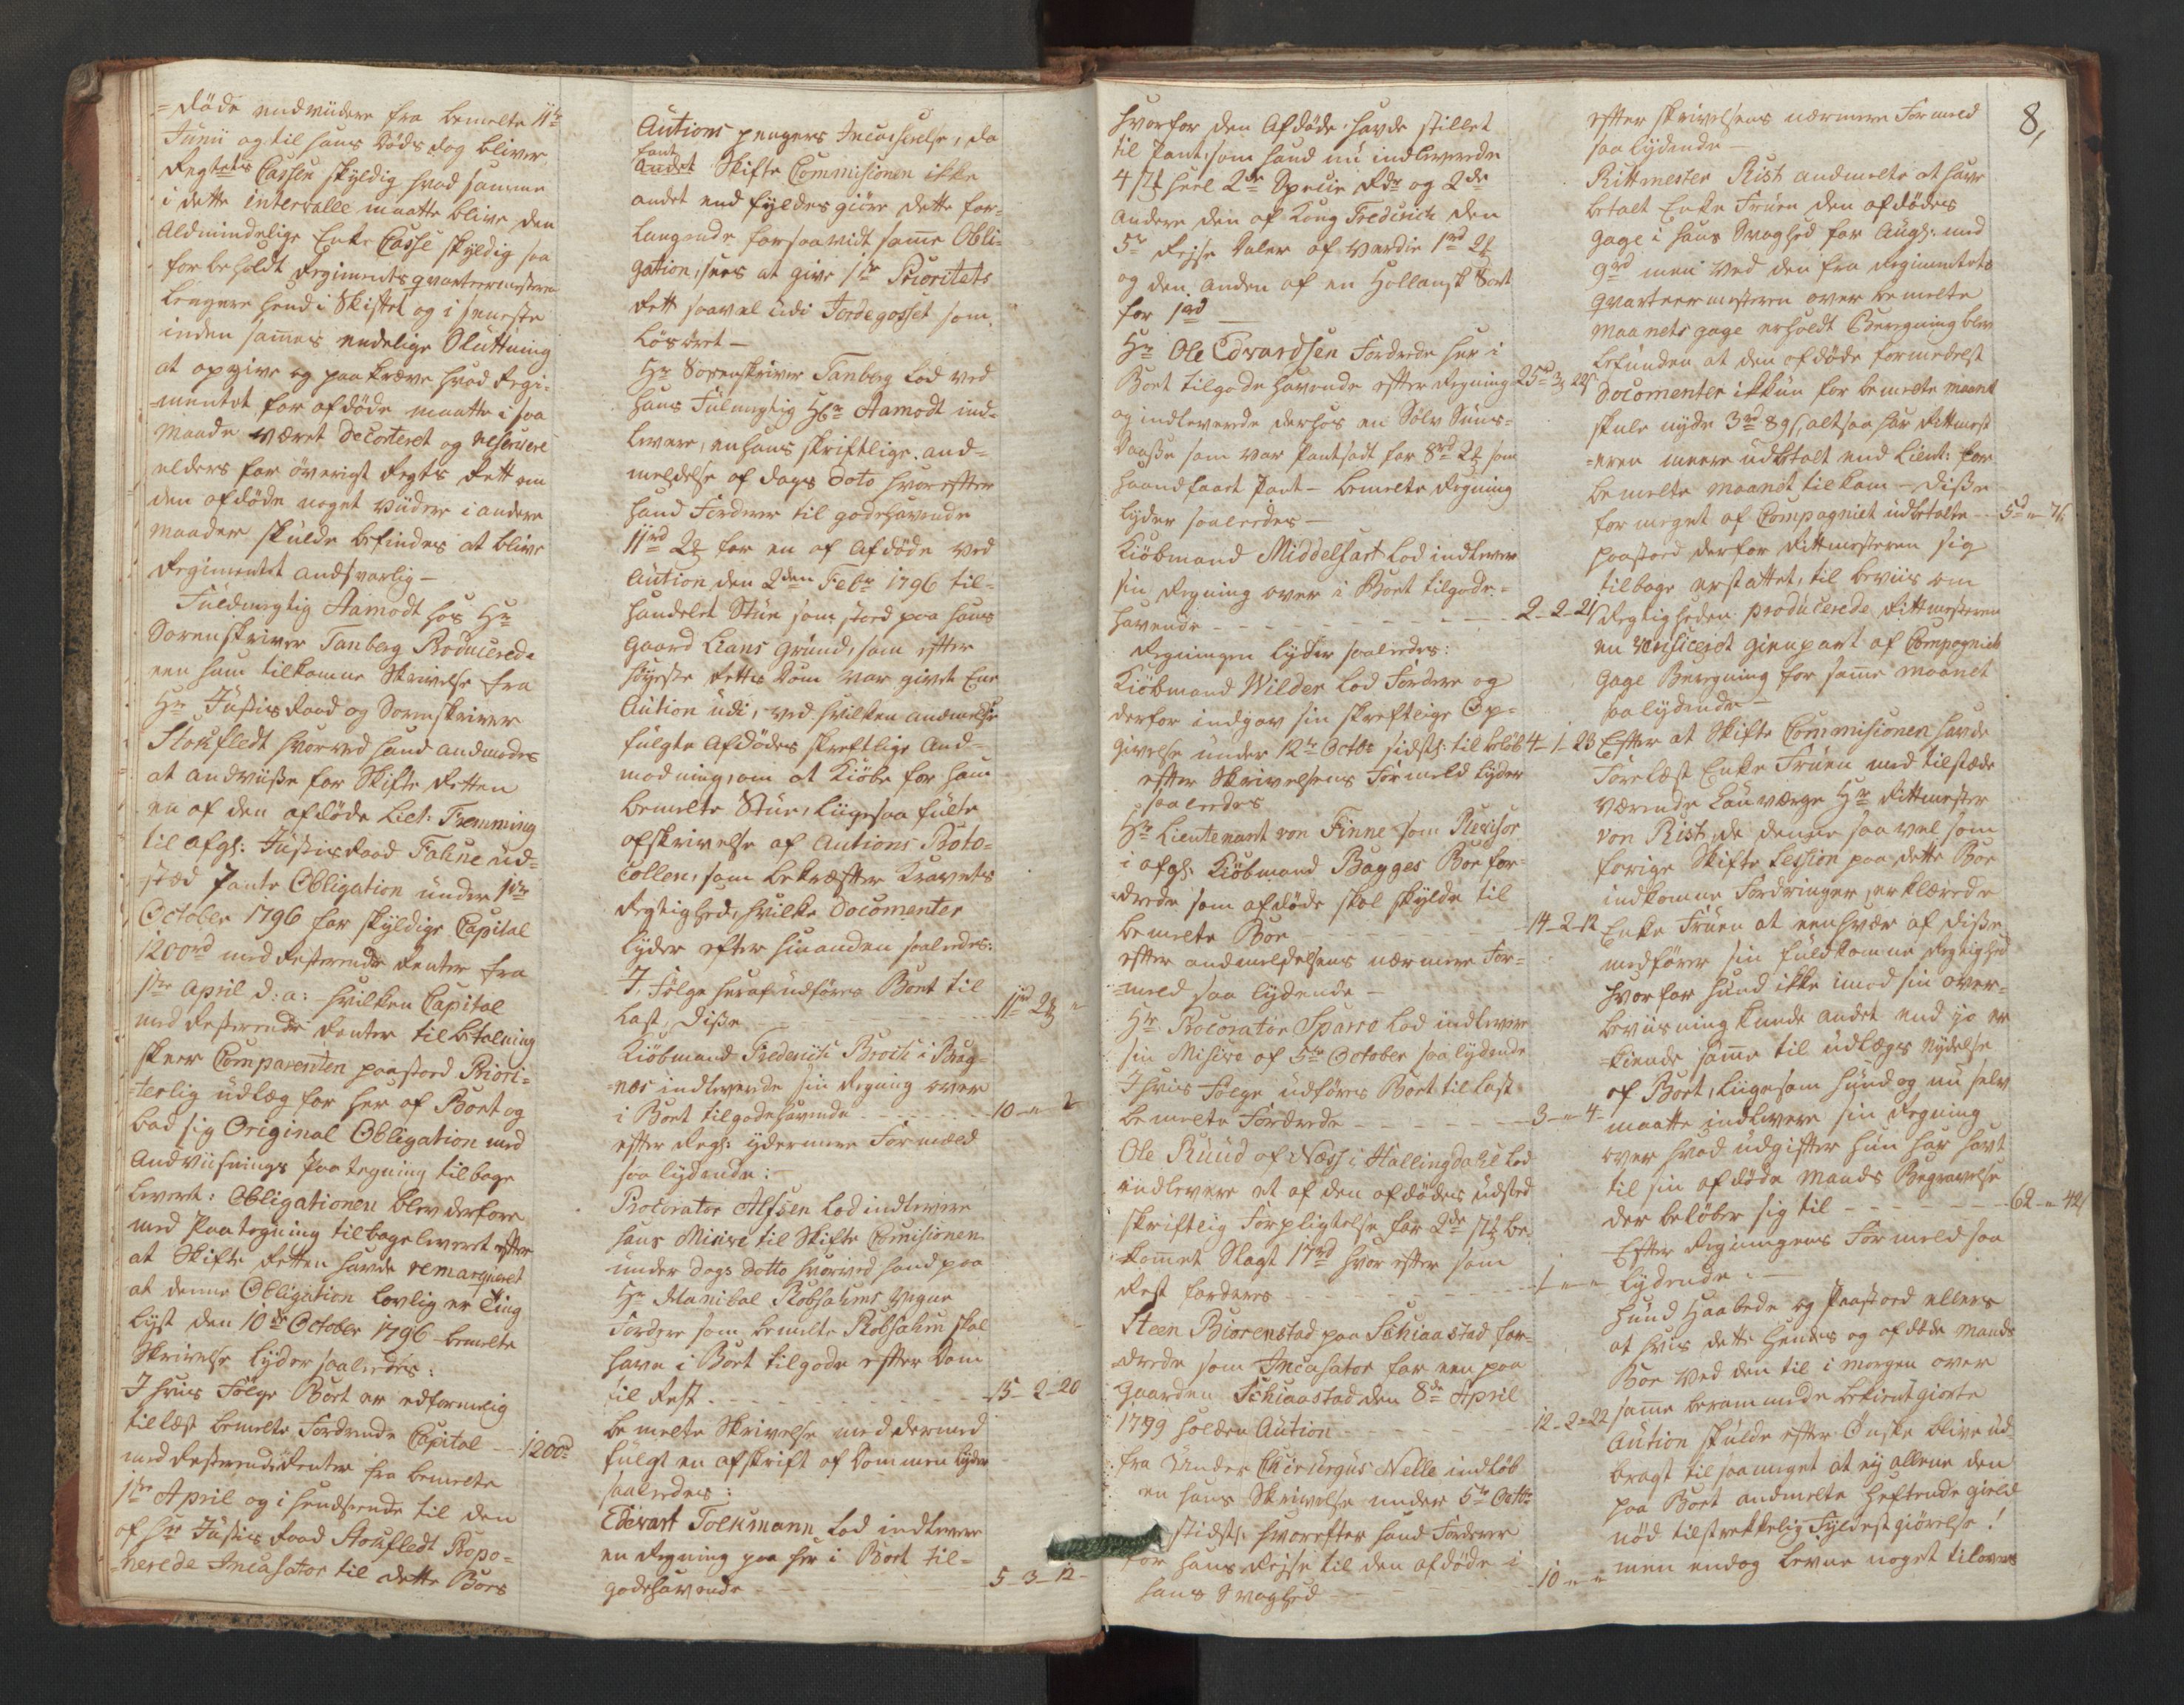 = døde endvidere fra bemelte 11te
Junii og til hans Døds dag bliver
Regtets Cassen skyldig hvad samme
i dette intervalle maatte blive den
Aldmindelige Enke Casse skyldig saa
forbeholdt Regiments qvarteermesteren
længere hend i Skiftet og i seneste
inden sammes endelige Sluttning
at opgive og paakræve hvad Regi-
mentet for afdøde maatte i saa
Maade været Decorteret og
ellers for øvrigt Regts Rett om
den afdøde noget videre i andere
Maader skulde befindes at blive
Regimentet andsvarlig —
Fuldmegtig Aamodt hos Hr
Sorenskriver Tanberg Producerede
een ham tilkomne Skrivelse fra
Hr Justis Raad og Sorenskriver
Stokfledt hvorved hand andmodes
at andviisse for Skifte Retten
en af den afdøde Liet: Fremming
til afgl: Justis Raad Fahne ud-
stæd Pante Obligation under 1te
October 1796 for skyldige Capital
1200rd med resterende Renter fra
1te April d: a: hvilken Capital
med Resterende Renter til betalning
skeer Comparenten paastod Priori-
terlig udlæg for her af Boet og
bad sig Original Obligation med
Andviisnings Paategning tilbage
levert: Obligationen blev derfore
med Paategning tilbageleveret efter
at Skifte Retten havde remarqueret
at denne Obligation lovlig er Ting
lyst den 10de October 1796 bemelte
Skrivelse lyder saaledes:
I hvis Følge Boet er
tillæst bemelte Fordrende Capital — 1200rd
med Resterende Renter fra bemelte
1te April og i hendseende til den
af Hr Justis Raad Stokfledt Propo-
nerede Incasator til dette Boes
Auctions penges Incasserelse, da
fant
andet Skifte Commisionen ikke
andet end fyldesgiøre dette for-
langende forsaavidt samme Obli-
gation, sees at give 1te Prioritets
Rett saavel udi Jordegodset som
Løsøret —
Hr Sorenskriver Tanberg lod ved
hans Fulmegtig Hr Aamodt ind-
levere, en hans skriftlige and-
meldelse af dags Dato hvorefter
hand Forderer til godehavende
11rd 2 for en af Afdøde ved
Aution den 2den Febr 1796 til-
handelet Stue som stod paa hans
gaard Lians grund, som efter
høyeste Rettes Dom var givet Ene
Aution udi, ved hvilken andmelse
fulgte Afdødes skreftlige And-
modning, om at Kiøbe for ham
bemelte Stue, liigesaa fulte
afskrivelse af Autions Proto-
collen, som bekræfter Kravets
Regtighed, hvilke Documenter
lyder efter hinanden saaledes:
I Følge heraf udføres Boet til
Last Disse — 11rd 2 "
Kiøbmand Frederich Broch i Brag-
nes indleverde sin Regning over
i Boet tilgodehavende — 10 — " —
efter Regs: ydermere Formæld
saa lydende:
Procurator Alfsen lod indlevere
hans Misive til Skifte Comisionen
under Dags Datto hvorved hand paa
Hr Manibal Robsahms Vegne
Fordere som bemelte Robsahm skal
have i Boet tilgode efter Dom
til Rest — 15 — 2 — 20
bemelte Skrivelse med dermed
fulgt en afskrift af Dommen lyder
saaledes:
Edevart Tolkmann lod indlevere
en Regning paa her i Boet til-
godehavende — 5 — 3 — 12 —
8,
hvorfor den Afdøde havde stillet
til Pant, som hand nu indleverede
4 st heel 2de Specie Rdr og 2de
andere den af Kong Frederich den
5te Reise Daler af værdie 1rd 2
og den anden af en Hollansk Sort
for 1rd —
Hr Ole Edvardsen Fordrede her i
Boet tilgodehavende efter Regning 25rd 3 22s
og indleverde derhos en Sølv Snus-
Daasse som var Pantsadt for 8rd 2 som
haandfaaet Pant — bemelte Regning
lyder saaledes —
Kiøbmand Middelfart lod indlever
sin Regning over i Boet tilgode-
havende — 2 — 2 — 21
Regningen lyder saaledes:
Kiøbmand Wilder lod Fordere og
derfor indgav sin skreftlige Op-
givelse under 12te Octbr sidstl: til beløb 4 — 1 — 23
efter Skrivelsens Formeld lyder
saaledes
Hr Lieutenant von Finne som Revisor
i afgl: Kiøbmand Bagges Boe for-
drede som afdøde skal skylde til
bemelte Boe — 14 — 2 — 12
efter andmeldelsens nærmere For-
meld saa lydende —
Hr Procurator Sparre lod indlever
sin Misive af 5te October saa lydende
I hvis Følge udføres Boet til last
bemelte Fordrede — 3 — " — 4 —
Ole Ruud af Næss i Hallingdahl lod
indlevere et af den afdødes udsted
skriftlig Forpligtelse for 2de st be-
kommet Slagt 17rd hvor efter som
Rest forderes — 1 — " — "
Steen Biørenstad paa Schiaastad for-
drede som Incasator for een paa
Gaarden Schiaastad den 8de April
1799 holden Aution — 12 — 2 — 22
fra Under Chirurgus Nelle indløb
en hans Skrivelse under 5te Octbr
sidstl: hvorefter hand Forderer
for hans Reise til den afdøde i
hans Svaghed — 10 — " — "
efter skrivelsens nærmere Formeld
saa lydende —
Rittmester Rist andmelte at have
betalt Enke Fruen den afdødes
gage i hans Svaghed for Augs: med
9rd men ved den fra Regimentets
qvarteermesteren over bemelte
Maanets gage erholdt Beregning blev
befunden at den afdøde formedelst
Documenter ikkun for bemelte Maanet
skule nyde 3rd 89s, altsaa har Rittmest
eren meere udbetalt end Lieut: for
bemelte Maanet tilkam — Disse
for meget af Compagniet udbetalte — 5rd " 7s
paastod derfor Rittmesteren sig
tilbage erstattet, til beviis om
Regtigheden producerede Rittmesteren
en Verificeret gienpart af Compagniets
gage Beregning for samme Maanet
saalydende —
Efter at Skifte Commisionen havde
Forelæst Enke Fruen med tilstæde
værende Lauværge Hr Rittmester
von Rist, de denne saavel som
forige Skifte Session paa dette Boe
indkomne Fordringer, erklærede
Enke Fruen at eenhver af disse
medfører sin fuldkomne Regtighed
hvorfor hund ikke imod sin over-
beviisning kunde andet end jo er
kiende samme til udlægs nydelse
af Boet, liigesom hund og nu selv
maatte indlevere sin Regning
over hvad udgifter hun har havt
til sin afdøde Mands Begravelse
der beløber sig til — 62 — " — 42s
Efter Regningens Formeld saa
lydende: —
Hund Haabede og Paastod ellers
at hvis dette hendes og afdøde Mands
Boe ved den til i Morgen over
samme berammede bekientgiorte
Aution skulde efter Ønske blive ud-
bragt til saameget at ey allene den
paa Boet andmelte heftende gield
nød tilstrekkelig Fyldestgiørelse!
men endog levne noget tilovers